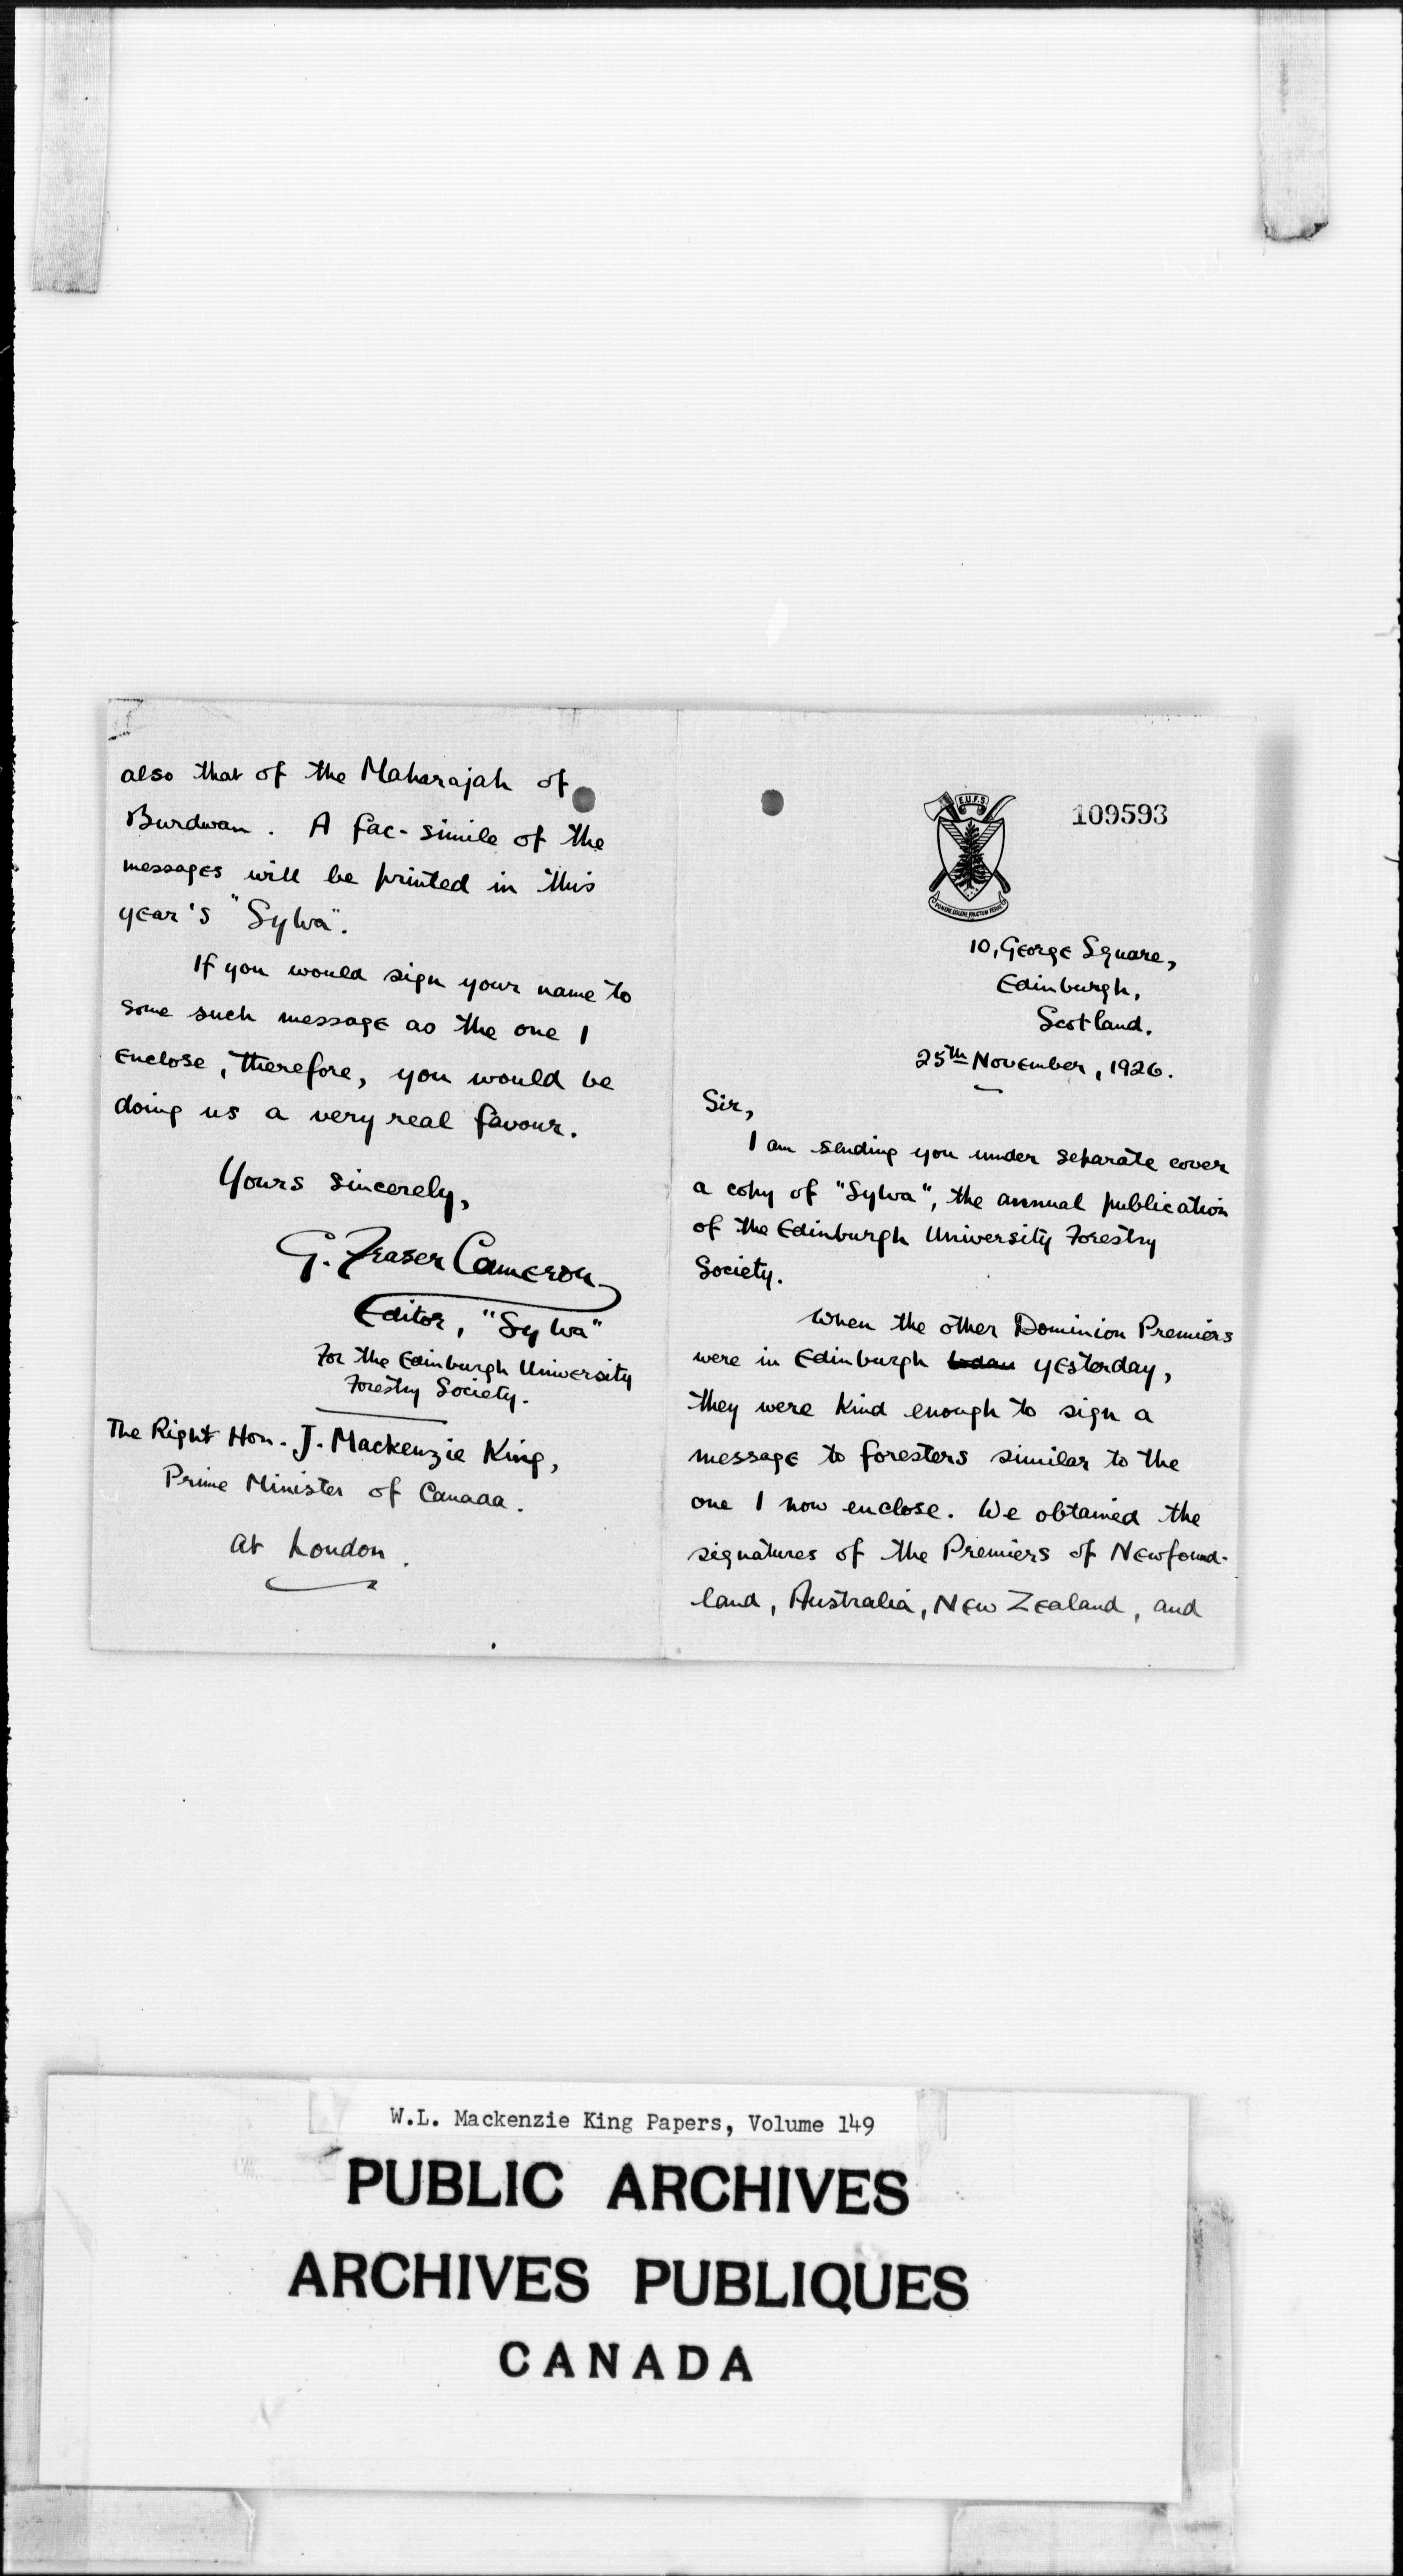 E.U.F.S
109593
10, George Square,
Edinburgh,
Scotland.
25th November, 1926.
Sir,
I am sending you under separate cover
a copy of "Sylva", the annual publication
of the Edinburgh University Forestry
Society.
When the other Dominion Premiers
were in Edinburgh yesterday,
they were kind enough to sign a
message to foresters similar to the
one I now enclose. We obtained the
signatures of the Premiers of Newfound-
land, Australia, New Zealand, and
also that of the Maharajah of
Burdwan. A fac-simile of the
messages will be printed in this
year's "Sylva".
If you would sign your name to
some such message as the one I
enclose, therefore, you would be
doing us a very real favour.
Yours sincerely,
G. Fraser Cameron
Editor, "Sylva"
For the Edinburgh University
Forestry Society.
The Right Hon. J. Mackenzie King,
Prime Minister of Canada.
at London.
W.L. Mackenzie King Papers, Volume 149
PUBLIC ARCHIVES
ARCHIVES PUBLIQUES
CANADA